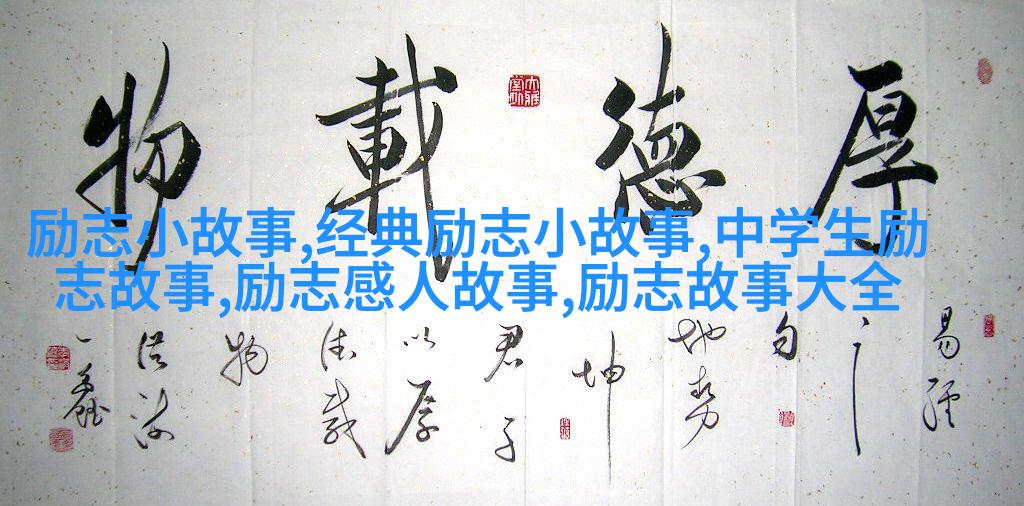 厚德載物
励志小故事,经典励志小故事,中学生励
志故事,励志感人故事,励志故事大全
易經
之一
句
地勢
坤
君子
以厚
德載
物